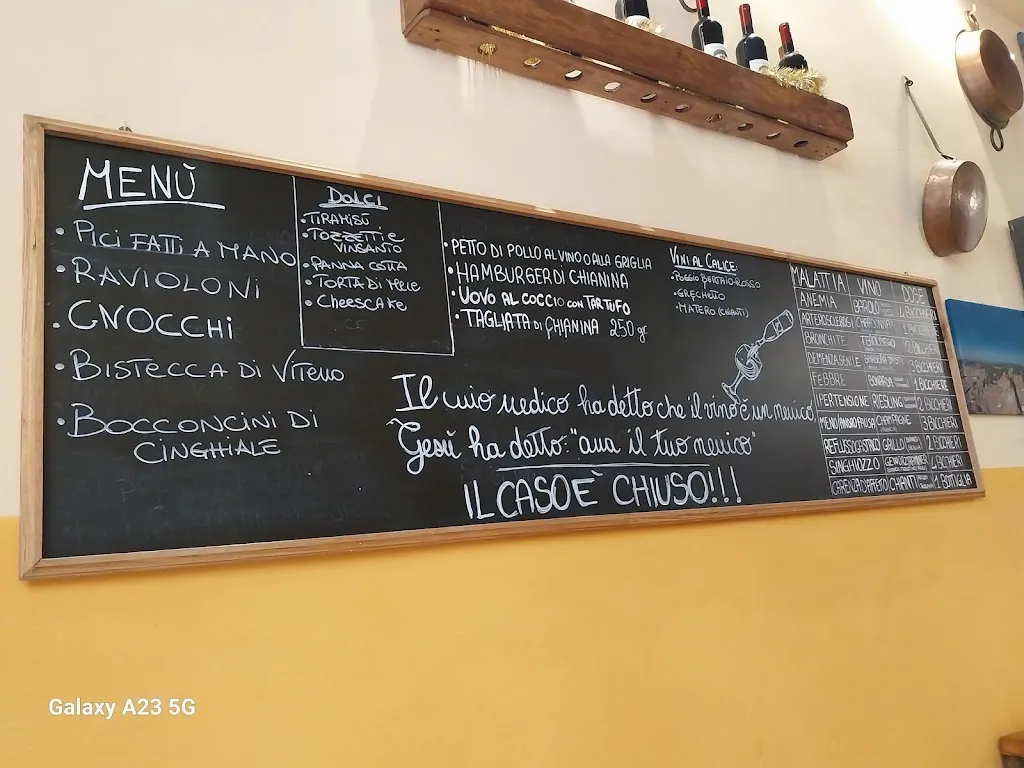 MENÙ
• PICI FATTI A MANO
• RAVIOLONI
• GNOCCHI
• BISTECCA DI VITELLO
• BOCCONCINI DI
CINGHIALE
DOLCI
• TIRAMISÙ
• TOZZETTI e
VINSANTO
• PANNA COTTA
• TORTA DI MELE
• CHEESCAKE
• PETTO DI POLLO AL VINO O ALLA GRIGLIA
• HAMBURGER DI CHIANINA
• UOVO AL COCCIO CON TARTUFO
• TAGLIATA DI CHIANINA 250 gr
VINI AL CALICE:
• POGGIO BERTAIO ROSSO
• GRECHETTO
• MATERO (CHIANTI)
Il mio medico ha detto che il vino è un nemico,
Gesù ha detto: "ama il tuo nemico"
IL CASO È CHIUSO!!!
MALATTIA VINO DOSE
ANEMIA BAROLO 4 BICCHIERI
ARTEROSCLEROSI CHARDONNAY BICCHIERI
BRONCHITE TEROLDEGO 2 BICCHIERI
DEMENZA SENILE BARBERA D'ASTI 3 BICCHIERI
FEBBRE BONARDA 1 BICCHIERE
IPERTENSIONE RIESLING 2 BICCHIERI
MENO ANDROPAUSA CHAMPAGNE 3 BICCHIERI
REFLUSSO GASTRICO GRILLO 2 BICCHIERI
SINGHIOZZO 4 BICCHIERI
CARENZA D'AFFETTO CHIANTI 1 BOTTIGLIA
Galaxy A23 5G